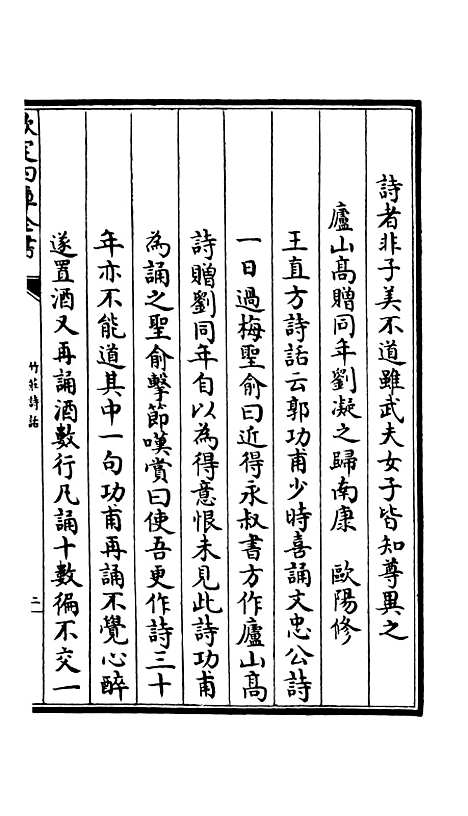 詩者非子美不道雖武夫女子皆知尊異之
廬山高贈同年劉凝之歸南康　歐陽修
王直方詩話云郭功甫少時喜誦文忠公詩
一日過梅聖俞曰近得永叔書方作廬山高
詩贈劉同年自以為得意恨未見此詩功甫
為誦之聖俞擊節嘆賞曰使吾更作詩三十
年亦不能道其中一句功甫再誦不覺心醉
遂置酒又再誦酒數行凡誦十數徧不交一
欽定四庫全書
竹莊詩話
二